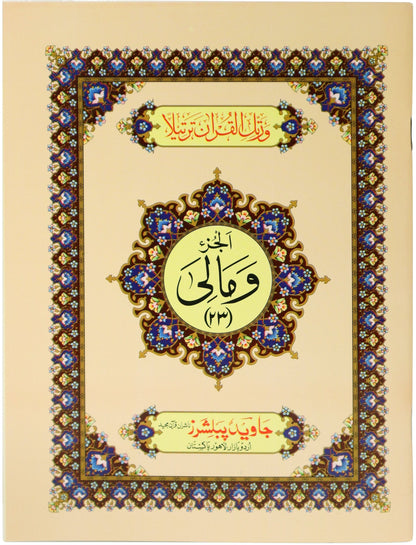 ورتل القرآن ترتیلا
الجزء
ومالی
(۲۳)
جاوید پبلشرز ناشران قرآن مجید
اردو بازار لاہور پاکستان